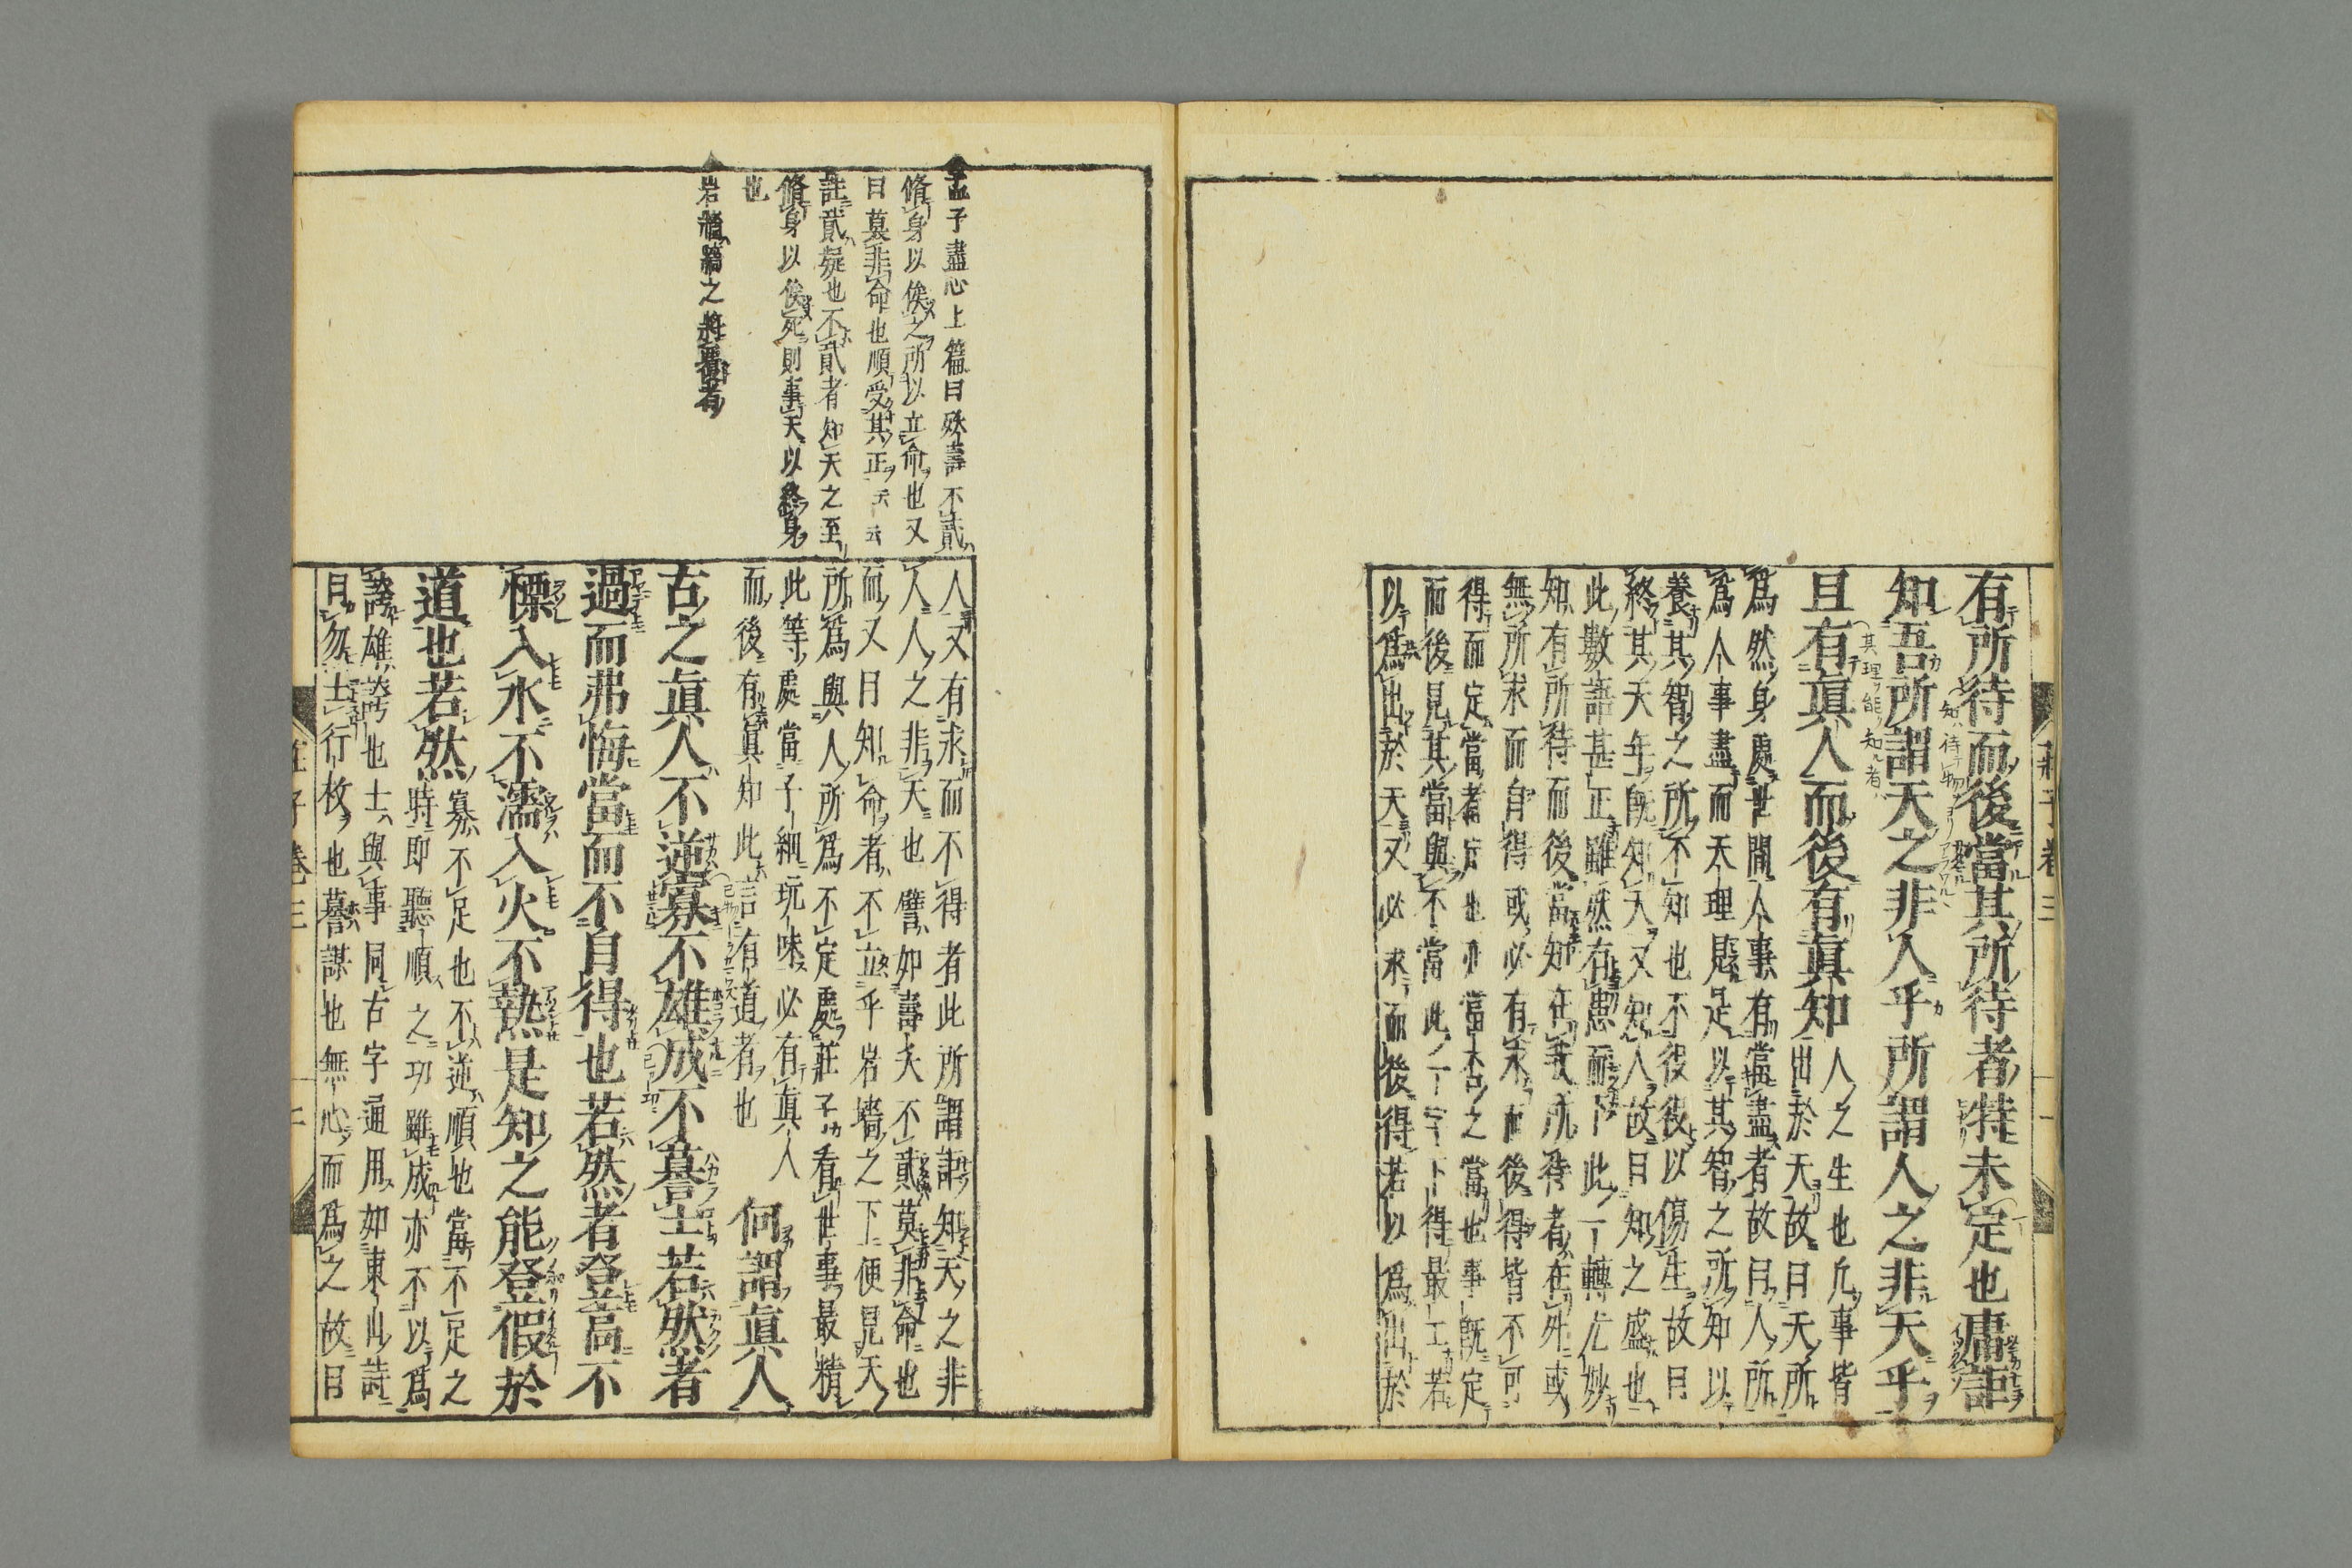 有所待而後當其所待者特未定也庸詎
知吾所謂天之非人乎所謂人之非天乎
且有眞人而後有眞知
人之生也凡事皆
出於天故曰天所
爲然身處世間人事有當盡者故曰人所
爲人事盡而天理見足以其智之所知以
養其智之所不知也不役役以傷生故曰
終其天年旣知天又知人故曰知之盛也
此數語甚正雖然有患而下此一轉尤妙
知有所待而後當知在我所待者在外或
無所求而自得或必有求而後得皆不可
得而定當者定也亦當否之當也事旣定
而後見其當與不當此一字下得最工若
以爲出於天又必求而後得若以爲出於
莊子卷三
孟子盡心上篇曰殀壽不貳
脩身以俟之所以立命也又
曰莫非命也順受其正云云
註貳疑也不貳者知天之至
脩身以俟死則事天以終身
也
岩墻墻之將覆者
人又有求而不得者此所謂詎知天之非
人人之非天也譬如壽夭不貳莫非命也
而又曰知命者不立乎岩墻之下便見天
所爲與人所爲不定處莊子看世事最精
此等處當子細玩味必有眞人
而後有眞知此言有道者也
何謂眞人
古之眞人不逆寡不雄成不謩士若然者
過而弗悔當而不自得也若然者登高不
慄入水不濡入火不熱是知之能登假於
道也若然
寡不足也不逆順也當不足之
時即聽順之功雖成亦不以爲
誇雄誇也士與事同古字通用如東山詩
曰勿士行枚也謩謀也無心而爲之故曰
莊子卷三